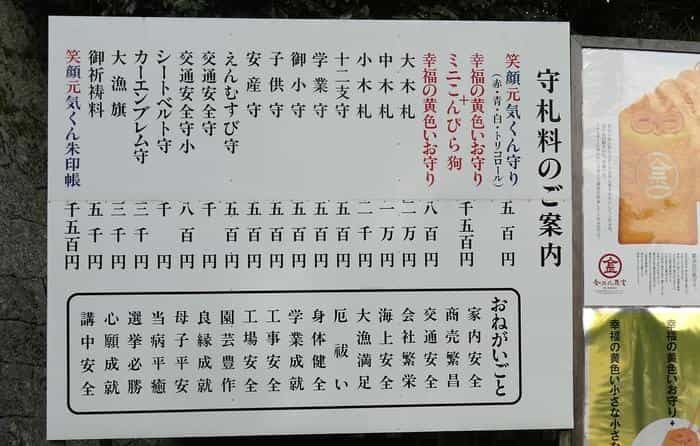 守札料のご案内
笑顔元気くん守り 五百円
(赤・青・白・トリコロール)
幸福の黄色いお守り
+
ミニこんぴら狗 千五百円
幸福の黄色いお守り 八百円
大木札 二万円
中木札 一万円
小木札 二千円
十二支守 五百円
学業守 五百円
御小守 五百円
子供守 五百円
安産守 五百円
えんむすび守 五百円
交通安全守 千円
交通安全守小 八百円
シートベルト守 千円
カーエンブレム守 三千円
大漁旗 三千円
御祈祷料 五千円
笑顔元気くん朱印帳 千五百円
おねがいごと
家内安全
商売繁昌
交通安全
会社繁栄
海上安全
大漁満足
厄祓い
身体健全
学業成就
工事安全
工場安全
園芸豊作
良縁成就
母子平安
当病平癒
選挙必勝
心願成就
講中安全
幸福の黄色いお守り+
幸福の黄色い小さな小さな